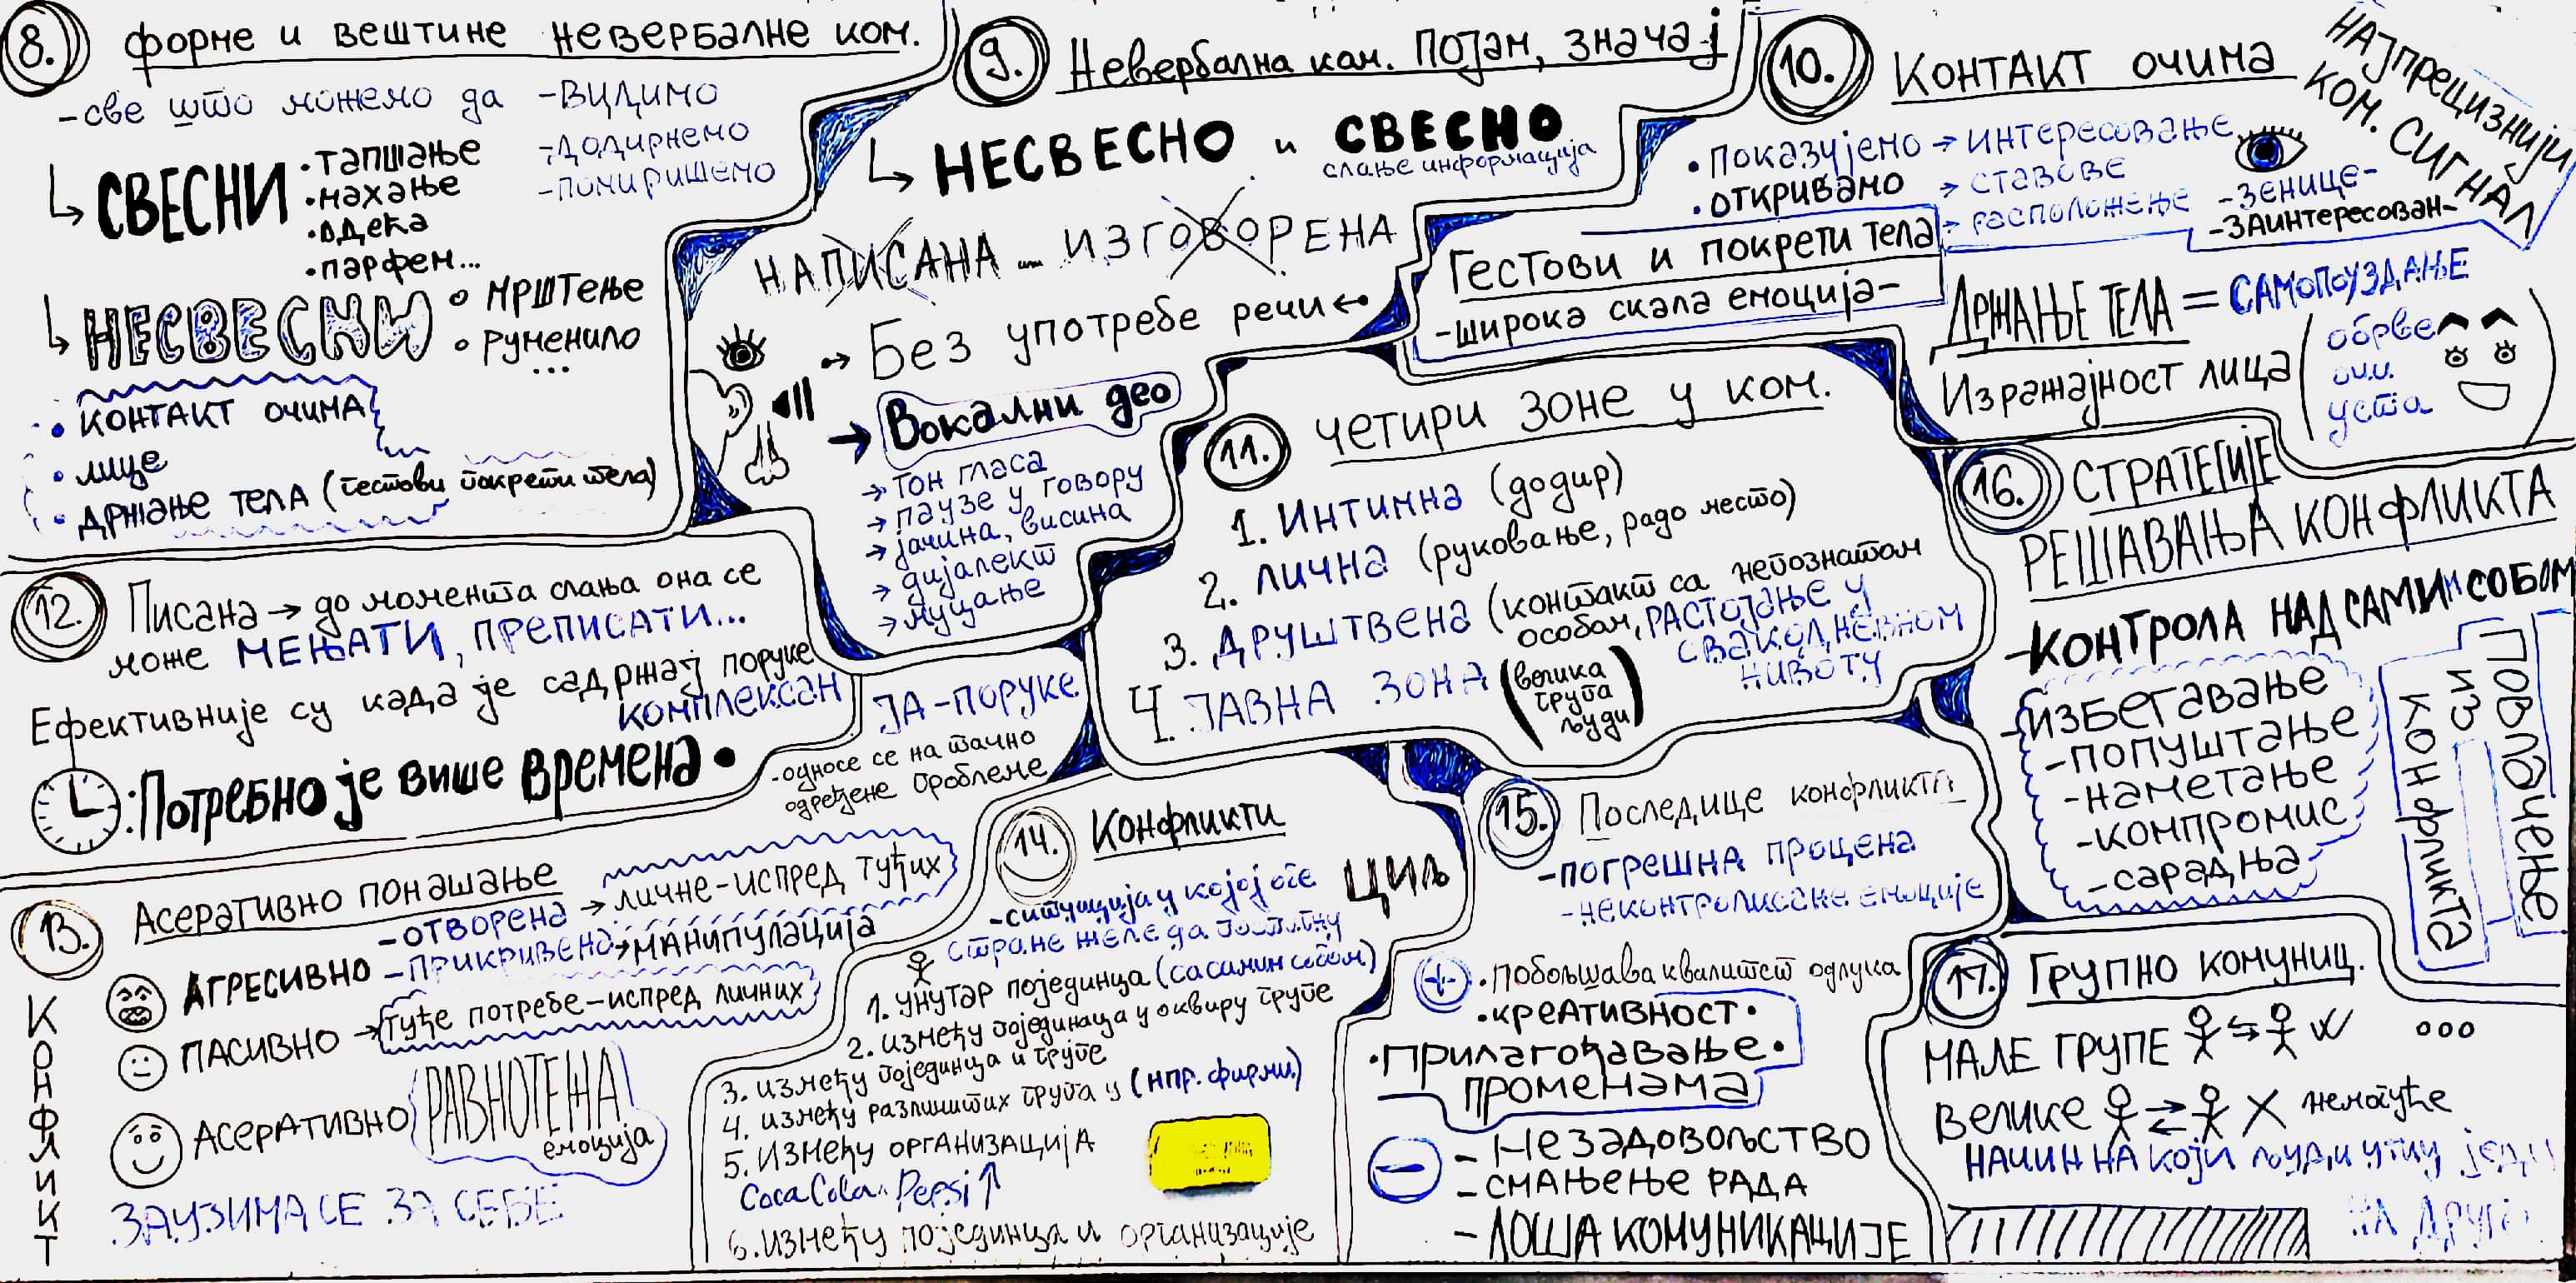 8. форме и вештине невербалне ком.
-све што можемо да -видимо
-додирнемо
-помиришемо
СВЕСНИ
•тапшање
•махање
•одећа
•парфем...
НЕСВЕСНИ
• мрштење
• руменило
...
• контакт очима
• лице
• држање тела (гестови покрети тела)
9. Невербална ком. појам, значај
НЕСВЕСНО и СВЕСНО
слање информација
НАПИСАНА ИЗГОВОРЕНА
Без употребе речи
Вокални део
тон гласа
паузе у говору
јачина, висина
дијалект
муцање
10. КОНТАКТ очима
НАЈПРЕЦИЗНИЈИ
КОМ. СИГНАЛ
•показујемо → интересовање
•откривамо → ставове
→ расположење
-зенице-
-заинтересован-
Гестови и покрети тела
-широка скала емоција-
ДРЖАЊЕ ТЕЛА = САМОПОУЗДАЊЕ
Изражајност лица
обрве
очи
уста
11. четири зоне у ком.
1. Интимна (додир)
2. лична (руковање, радо место)
3. друштвена (контакт са непознатом
особом, растојање у
свакодневном
животу
4. ЈАВНА ЗОНА (велика
група
људи)
12. Писана → до момента слања она се
може МЕЊАТИ, ПРЕПИСАТИ...
Ефективније су када је садржај поруке
комплексан
:Потребно је више времена•
ЈА-поруке
-односе се на тачно
одређене проблеме
13. Асеративно понашање
КОНФЛИКТ
АГРЕСИВНО
-отворена → личне-испред туђих
-прикривена → манипулација
ПАСИВНО → туђе потребе-испред личних
АСЕРАТИВНО РАВНОТЕЖА
емоција
ЗАУЗИМА СЕ ЗА СЕБЕ
14. Конфликти
-ситуација у којој обе
стране желе да постигну
ЦИЉ
1. унутар појединца (са самим собом)
2. између појединаца у оквиру групе
3. између појединца и групе
4. између различитих група у (нпр. фирми)
5. између организација
Coca Cola Pepsi
6. између појединца и организације
15. Последице конфликта
-погрешна процена
-неконтролисане емоције
+ •побољшава квалитет одлука
•креативност•
•прилагођавање•
променама
- -Незадовољство
-смањење рада
-ЛОША КОМУНИКАЦИЈЕ
16. СТРАТЕГИЈЕ
РЕШАВАЊА КОНФЛИКТА
-КОНТРОЛА НАД САМИМ СОБОМ
-избегавање
-попуштање
-наметање
-компромис
-сарадња
Повлачење
из
конфликта
17. Групно комуниц.
МАЛЕ ГРУПЕ
велике немогуће
НАЧИН НА КОЈИ људи утичу једни
на друге